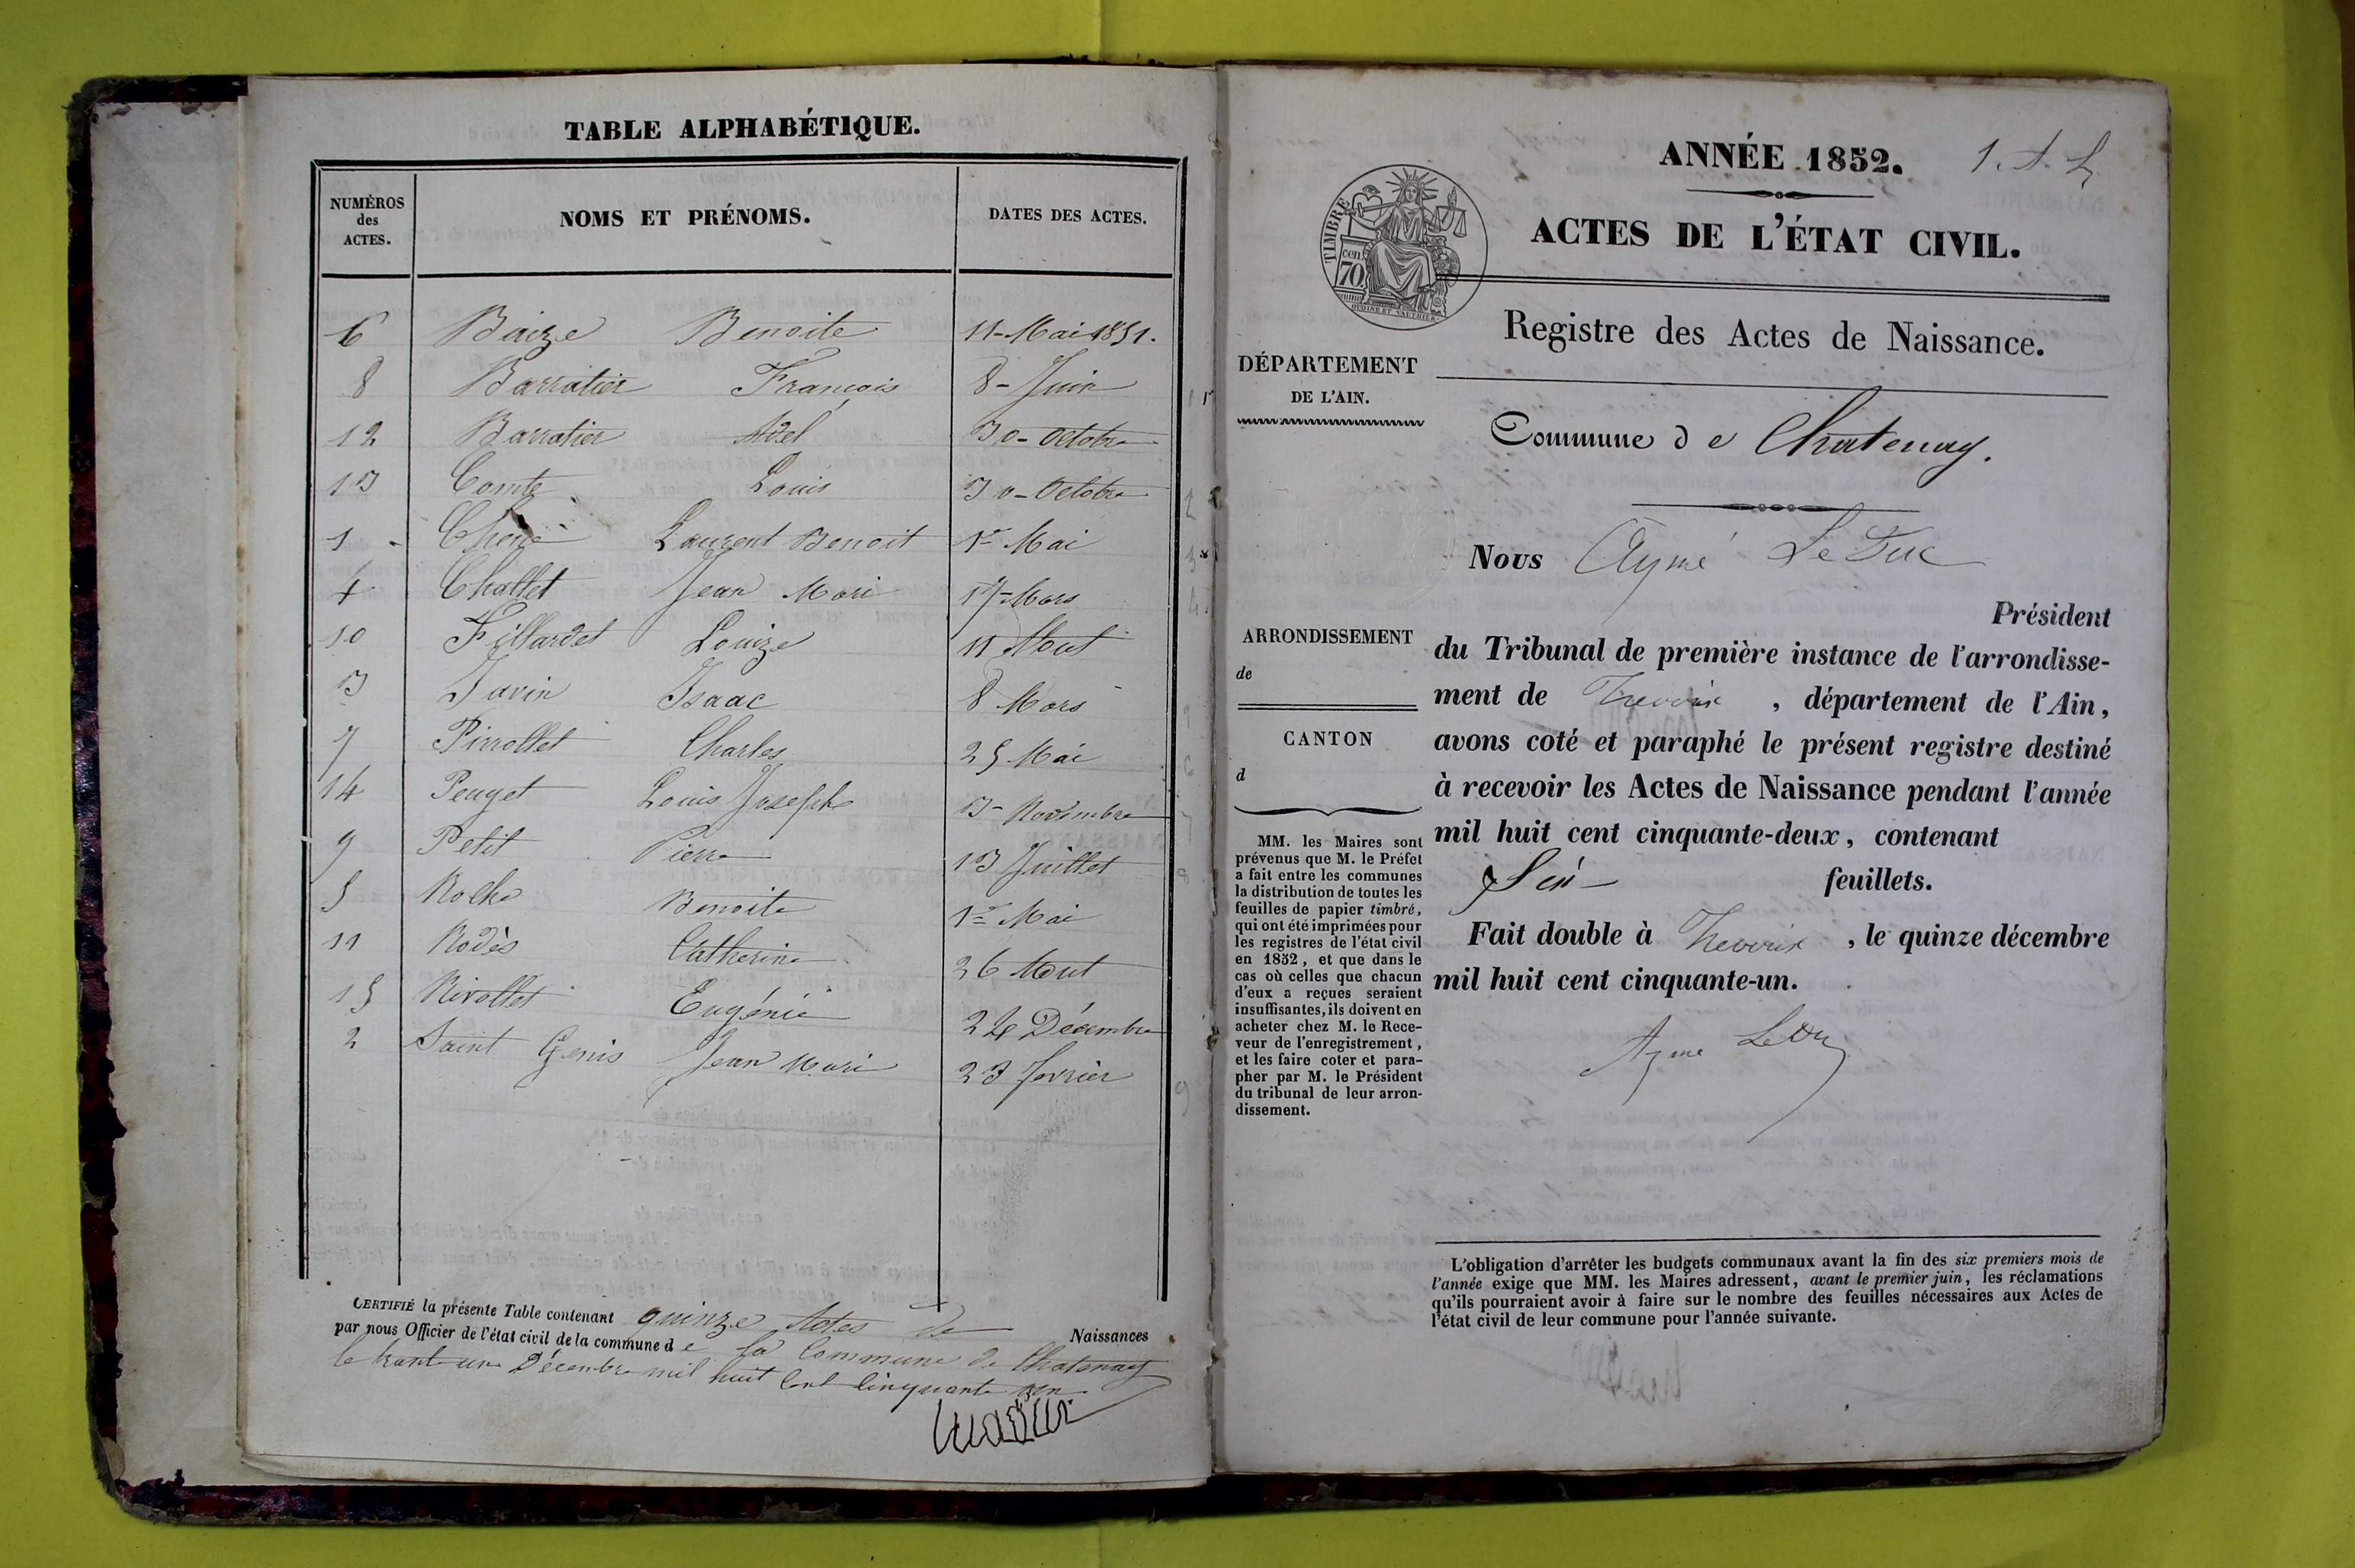 TABLE ALPHABÉTIQUE.
NUMÈROS des ACTES.
NOMS ET PRÉNOMS.
DATES DES ACTES.
6 Baize Benoite 11 - Mai 1851.
8 Barratier François 8 - Juin
12 Barratier Abel 30 - Octobre
13 Comte Louis 30 - Octobre
1 Laurent Benoit 1er Mai
4 Chollet Jean Mari 17 - Mars
10 Féllardet Louize 11 Aout
3 Isaac 8 Mars
7 Pirrollet Charles 25 Mai
14 Peuget Louis Joseph 13 - Novembre
9 Petit Pierre 13 Juillet
5 Roche Benoite 1er Mai
11 Rodès Catherine 26 Aout
15 Rivollet Eugénie 24 Décembre
2 Saint Genis Jean Mari 23 fevrier
CERTIFIÉ la présente Table contenant quinze Actes de Naissances
par nous Officier de l'état civil de la commune de la Commune de Chatenay
le trante un Décembre mil huit Cent Cinquante un
ANNÉE 1852.
1. A. L
TIMBRE
70 cen.
OUDINE ET VAUTHIER
ACTES DE L'ÉTAT CIVIL.
Registre des Actes de Naissance.
DÉPARTEMENT
DE L'AIN.
Commune de Chatenay.
Nous Aymé LeDuc
Président
ARRONDISSEMENT
de
CANTON
d
du Tribunal de première instance de l'arrondisse-
ment de Trevoux , département de l'Ain,
avons coté et paraphé le présent registre destiné
à recevoir les Actes de Naissance pendant l'année
mil huit cent cinquante-deux, contenant
feuillets.
Fait double à Trevoux , le quinze décembre
mil huit cent cinquante-un.
Ayme LeDuc
MM. les Maires sont
prévenus que M. le Préfet
a fait entre les communes
la distribution de toutes les
feuilles de papier timbré,
qui ont été imprimées pour
les registres de l'état civil
en 1852, et que dans le
cas où celles que chacun
d'eux a reçues seraient
insuffisantes, ils doivent en
acheter chez M. le Rece-
veur de l'enregistrement,
et les faire coter et para-
pher par M. le Président
du tribunal de leur arron-
dissement.
L'obligation d'arrêter les budgets communaux avant la fin des six premiers mois de
l'année exige que MM. les Maires adressent, avant le premier juin, les réclamations
qu'ils pourraient avoir à faire sur le nombre des feuilles nécessaires aux Actes de
l'état civil de leur commune pour l'année suivante.